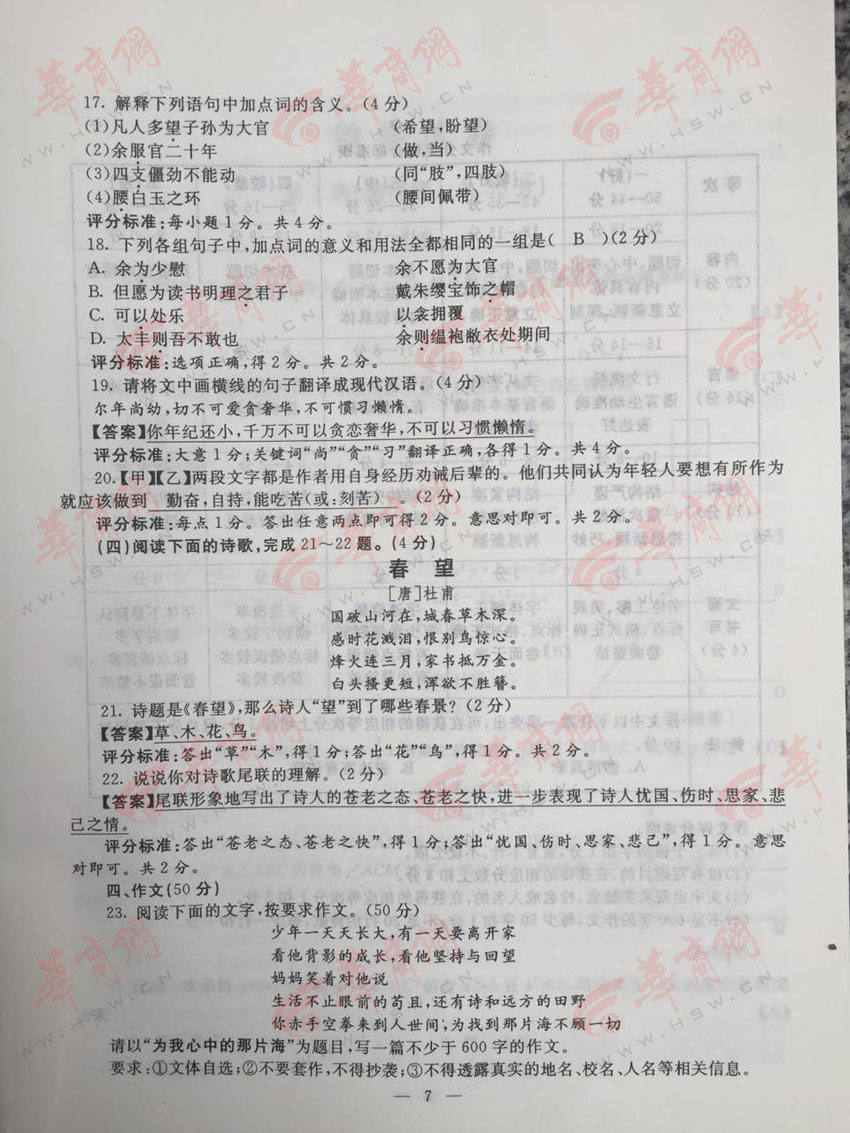 17. 解释下列语句中加点词的含义。(4分)
(1)凡人多望子孙为大官 (希望,盼望)
(2)余服官二十年 (做,当)
(3)四支僵劲不能动 (同“肢”,四肢)
(4)腰白玉之环 (腰间佩带)
评分标准:每小题1分。共4分。
18. 下列各组句子中,加点词的意义和用法全都相同的一组是( B )(2分)
A. 余为少慰 余不愿为大官
B. 但愿为读书明理之君子 戴朱缨宝饰之帽
C. 可以处乐 以衾拥覆
D. 太丰则吾不敢也 余则缊袍敝衣处期间
评分标准:选项正确,得2分。共2分。
19. 请将文中画横线的句子翻译成现代汉语。(4分)
尔年尚幼,切不可爱贪奢华,不可惯习懒惰。
【答案】你年纪还小,千万不可以贪恋奢华,不可以习惯懒惰。
评分标准:大意1分;关键词“尚”“贪”“习”翻译正确,各得1分。共4分。
20.【甲】【乙】两段文字都是作者用自身经历劝诫后辈的。他们共同认为年轻人要想有所作为
就应该做到 勤奋,自持,能吃苦(或:刻苦) 。(2分)
评分标准:每点1分。答出任意两点即可得2分。意思对即可。共2分。
(四)阅读下面的诗歌,完成21～22题。(4分)
春 望
[唐]杜甫
国破山河在,城春草木深。
感时花溅泪,恨别鸟惊心。
烽火连三月,家书抵万金。
白头搔更短,浑欲不胜簪。
21. 诗题是《春望》,那么诗人“望”到了哪些春景?(2分)
【答案】草、木、花、鸟。
评分标准:答出“草”“木”,得1分;答出“花”“鸟”,得1分。共2分。
22. 说说你对诗歌尾联的理解。(2分)
【答案】尾联形象地写出了诗人的苍老之态、苍老之快,进一步表现了诗人忧国、伤时、思家、悲
己之情。
评分标准:答出“苍老之态、苍老之快”,得1分;答出“忧国、伤时、思家、悲己”,得1分。意思
对即可。共2分。
四、作文(50分)
23. 阅读下面的文字,按要求作文。(50分)
少年一天天长大,有一天要离开家
看他背影的成长,看他坚持与回望
妈妈笑着对他说
生活不止眼前的苟且,还有诗和远方的田野
你赤手空拳来到人世间,为找到那片海不顾一切
请以“为我心中的那片海”为题目,写一篇不少于600字的作文。
要求:①文体自选;②不要套作,不得抄袭;③不得透露真实的地名、校名、人名等相关信息。
— 7 —
華商網
WWW.HSW.CN